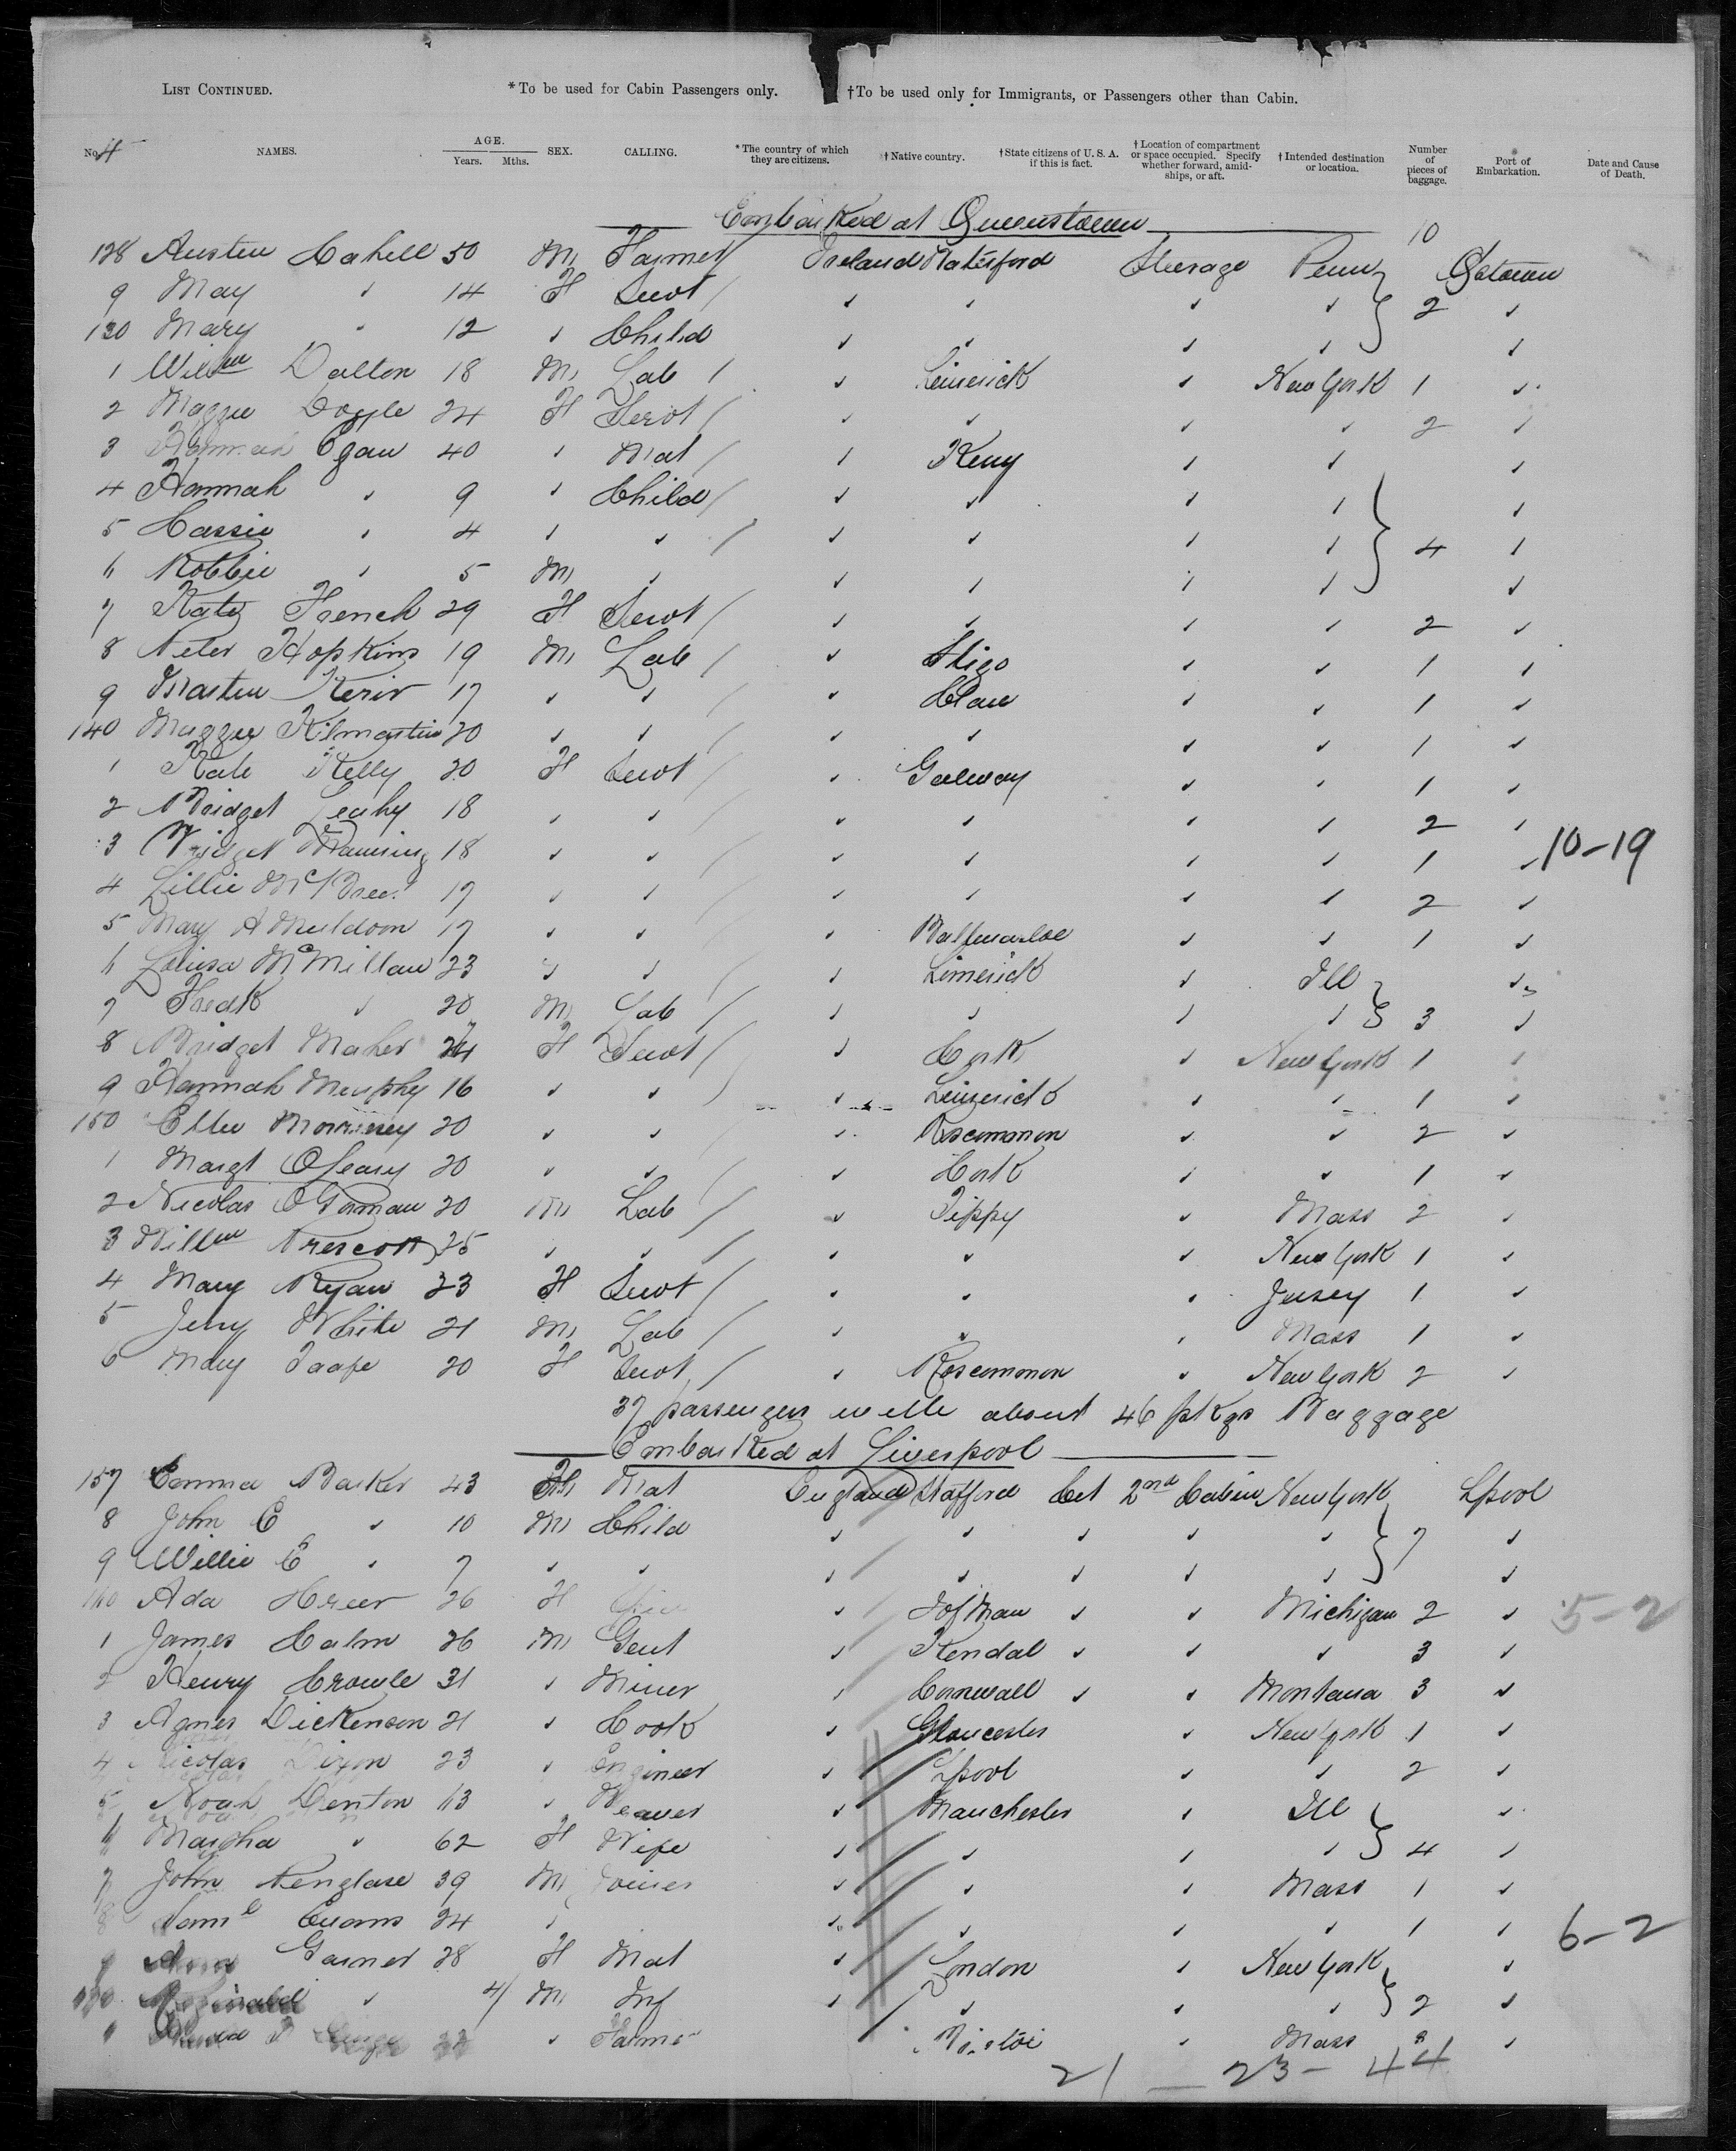 LIST CONTINUED. *To be used for Cabin Passengers only. †To be used only for Immigrants, or Passengers other than Cabin.
No. 4 NAMES. AGE. Years. Mths. SEX. CALLING. *The country of which they are citizens. †Native country. †State citizens of U. S. A. if this is fact. †Location of compartment or space occupied. Specify whether forward, amidships, or aft. †Intended destination or location. Number of pieces of baggage. Port of Embarkation. Date and Cause of Death.
Embarked at Queenstown 10
128 Austin Cahill 50 M Farmer / Ireland Waterford Steerage Penn Qstown
9 May " 14 F Servt / " " " " 2 "
130 Mary " 12 " Child " " " " "
1 Willm Dalton 18 M Lab / " Limerick " New York 1 "
2 Maggie Doyle 24 F Servt / " " " " 2 "
3 Hannah Egan 40 " Mat / " Kerry " " "
4 Hannah " 9 " Child / " " " " "
5 Cassie " 4 " " / " " " " 4 "
6 Robbie " 5 M " " " " " "
7 Kate French 29 F Servt / " " " " 2 "
8 Peter Hopkins 19 M Lab / " Sligo " " 1 "
9 Martin 17 " " / " Clare " " 1 "
140 Maggie Kilmartin 20 " " / " " " " 1 "
1 Kate Kelly 20 F Servt / " Galway " " 1 "
2 Bridget Leahy 18 " " / " " " " 2 "
3 Bridget Manning 18 " " / " " " " 1 " 10-19
4 Lillie 17 " " / " " " " 2 "
5 Mary A Muldoon 17 " " " " " 1 "
6 Louisa McMillan 23 " " / " Limerick " Ill "
7 Fredk " 20 M Lab / " " " " 3 "
8 Bridget Maher 24 F Servt / " Cork " New York 1 "
9 Hannah Murphy 16 " " / " Limerick " " 1 "
150 Ellen Morrissey 20 " " " Roscommon " " 2 "
1 Margt OLeary 20 " " / " Cork " " 1 "
2 Nicolas OGorman 20 M Lab / " Tippy " Mass 2 "
3 Willm Prescott 25 " " / " " " New York 1 "
4 Mary Ryan 23 F Servt / " " " Jersey 1 "
5 Jerry White 21 M Lab / " " " Mass 1 "
6 Mary Taafe 20 F Servt / " Roscommon " New York 2 "
37 passengers with about 46 pkgs Baggage
Embarked at Liverpool
157 Emma Barker 43 F Mat England Stafford Cit 2nd Cabin New York Lpool
8 John E " 10 M Child " " " " " 7 "
9 Willie E " 7 " " " " " " " "
160 Ada 26 F " I of Man " " Michigan 2 " 5-2
1 James 26 M Gent " Kendal " " " 3 "
2 Henry Crowle 31 " Miner " Cornwall " " Montana 3 "
3 Agnes Dickenson 21 " Cook " Gloucester " New York 1 "
4 Nicolas Dixon 23 " Engineer " Lpool " " 2 "
5 Noah Denton 63 " Weaver " Manchester " Ill "
6 Martha " 62 F Wife " " " " 4 "
7 John Penglase 39 M Joiner " " " Mass 1 "
8 Saml Evans 24 " " " " " 1 " 6-2
9 Garner 28 F Mat " London " New York "
170 Reginald " 4/ M Inf " " " " 2 "
1 " " Mass "
21 — 23 - 44